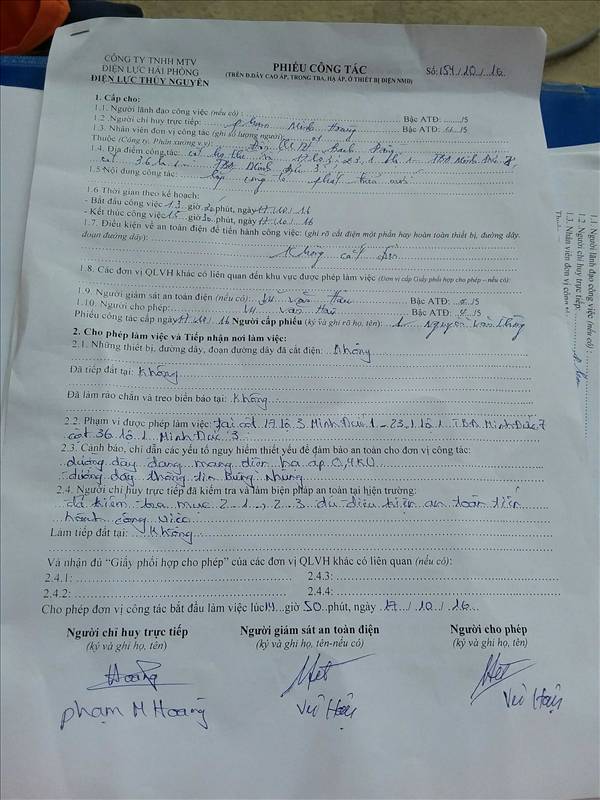 CÔNG TY TNHH MTV
ĐIỆN LỰC HẢI PHÒNG
ĐIỆN LỰC THỦY NGUYÊN
PHIẾU CÔNG TÁC
(TRÊN Đ.DÂY CAO ÁP, TRONG TBA, HẠ ÁP, Ở THIẾT BỊ ĐIỆN NMĐ)
Số: 154/10/16
1. Cấp cho:
1.1. Người lãnh đạo công việc (nếu có): Bậc ATĐ: /5
1.2. Người chỉ huy trực tiếp: Phạm Minh Hoàng Bậc ATĐ: /5
1.3. Nhân viên đơn vị công tác (ghi số lượng người):
Thuộc (Công ty, Phân xưởng v.v):
1.4. Địa điểm công tác: cột
cột 36 lô 1 TBA Minh Đức 3
1.5 Nội dung công tác: phát
1.6 Thời gian theo kế hoạch:
- Bắt đầu công việc 13 giờ phút, ngày 17/10/16
- Kết thúc công việc 15 giờ 30 phút, ngày 17/10/16
1.7. Điều kiện về an toàn điện để tiến hành công việc: (ghi rõ cắt điện một phần hay hoàn toàn thiết bị, đường dây,
đoạn đường dây): Không cắt điện
1.8. Các đơn vị QLVH khác có liên quan đến khu vực được phép làm việc (Đơn vị cấp Giấy phối hợp cho phép – nếu có):
1.9. Người giám sát an toàn điện (nếu có): Vũ Văn Hậu Bậc ATĐ: /5
1.10. Người cho phép: Vũ Văn Hậu Bậc ATĐ: /5
Phiếu công tác cấp ngày 17/10/16 Người cấp phiếu (ký và ghi rõ họ, tên): Nguyễn Văn
2. Cho phép làm việc và Tiếp nhận nơi làm việc:
2.1. Những thiết bị, đường dây, đoạn đường dây đã cắt điện: Không
Đã tiếp đất tại: Không
Đã làm rào chắn và treo biển báo tại: Không
2.2. Phạm vi được phép làm việc: Tại cột 17 lô 3 Minh Đức 1 - 23.1 lô 1 TBA Minh Đức 7
cột 36 lô 1 Minh Đức 3
2.3. Cảnh báo, chỉ dẫn các yếu tố nguy hiểm thiết yếu để đảm bảo an toàn cho đơn vị công tác:
đường dây đang mang điện hạ áp 0,4KV
đường dây thông tin Bưng Nhưng
2.4. Người chỉ huy trực tiếp đã kiểm tra và làm biện pháp an toàn tại hiện trường:
đã kiểm tra mục 2.1, 2.3 đủ điều kiện an toàn tiến
hành công việc
Làm tiếp đất tại: Không
Và nhận đủ “Giấy phối hợp cho phép” của các đơn vị QLVH khác có liên quan (nếu có):
2.4.1: 2.4.3:
2.4.2: 2.4.4:
Cho phép đơn vị công tác bắt đầu làm việc lúc 14 giờ 50 phút, ngày 17/10/16
Người chỉ huy trực tiếp Người giám sát an toàn điện Người cho phép
(ký và ghi họ, tên) (ký và ghi họ, tên-nếu có) (ký và ghi họ, tên)
Hoàng
phạm M Hoàng Vũ Hậu Vũ Hậu
1.1 Người lãnh đạo công việc (nếu có):
1.2 Người chỉ huy trực tiếp:
1.3. Nhân viên đơn vị công